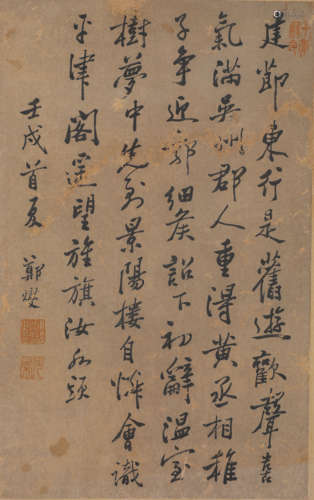 建節東行是舊遊歡聲喜
氣滿吳州郡人重得黃丞相稚
子爭迎郭細侯詔下初辭溫室
樹夢中先到景陽樓自憐會識
平津閣遙望旌旗汝水頭
壬戌首夏 鄭燮